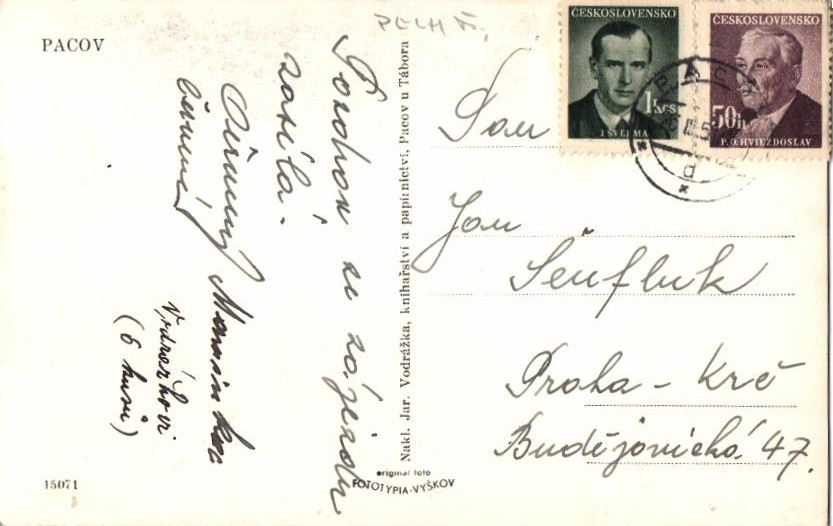 PACOV
PELHŘ.
Pozdrav ze zájezdu
zasílá
Marinka
(6 kusů)
Nakl. Jar. Vodrážka, knihařství a papírnictví, Pacov u Tábora
original foto
FOTOTYPIA-VYŠKOV
15071
ČESKOSLOVENSKO
1 Kčs
J. ŠVERMA
ČESKOSLOVENSKO
50h
P. O. HVIEZDOSLAV
PACOV
d
Pan
Jan
Šenfluk
Praha - Krč
Budějovická 47.